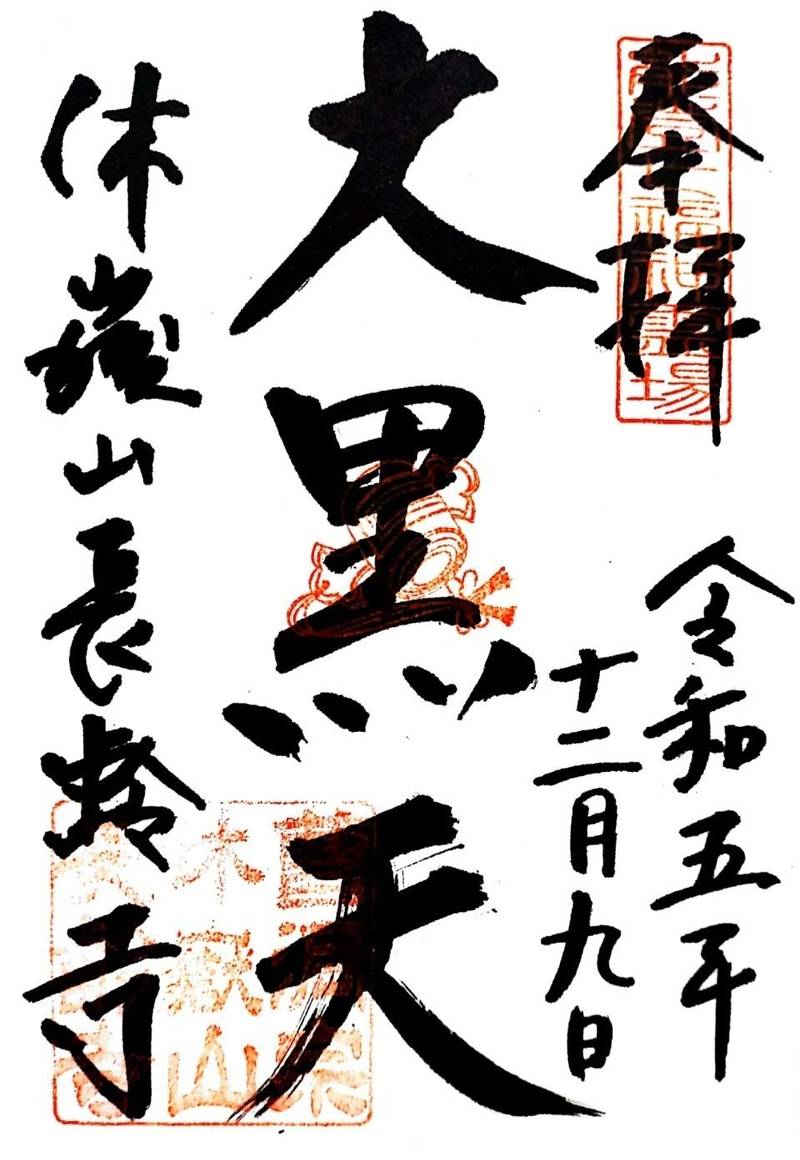 奉拝
令和五年
十二月九日
大黒天
休嶽山長齢寺